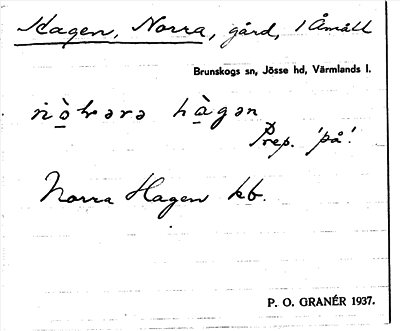 Hagen, Norra, gård, 1 Åmåll
Brunskogs sn, Jösse hd, Värmlands l.
hàgən
Prep. 'på'.
Norra Hagen kb.
P. O. GRANÉR 1937.